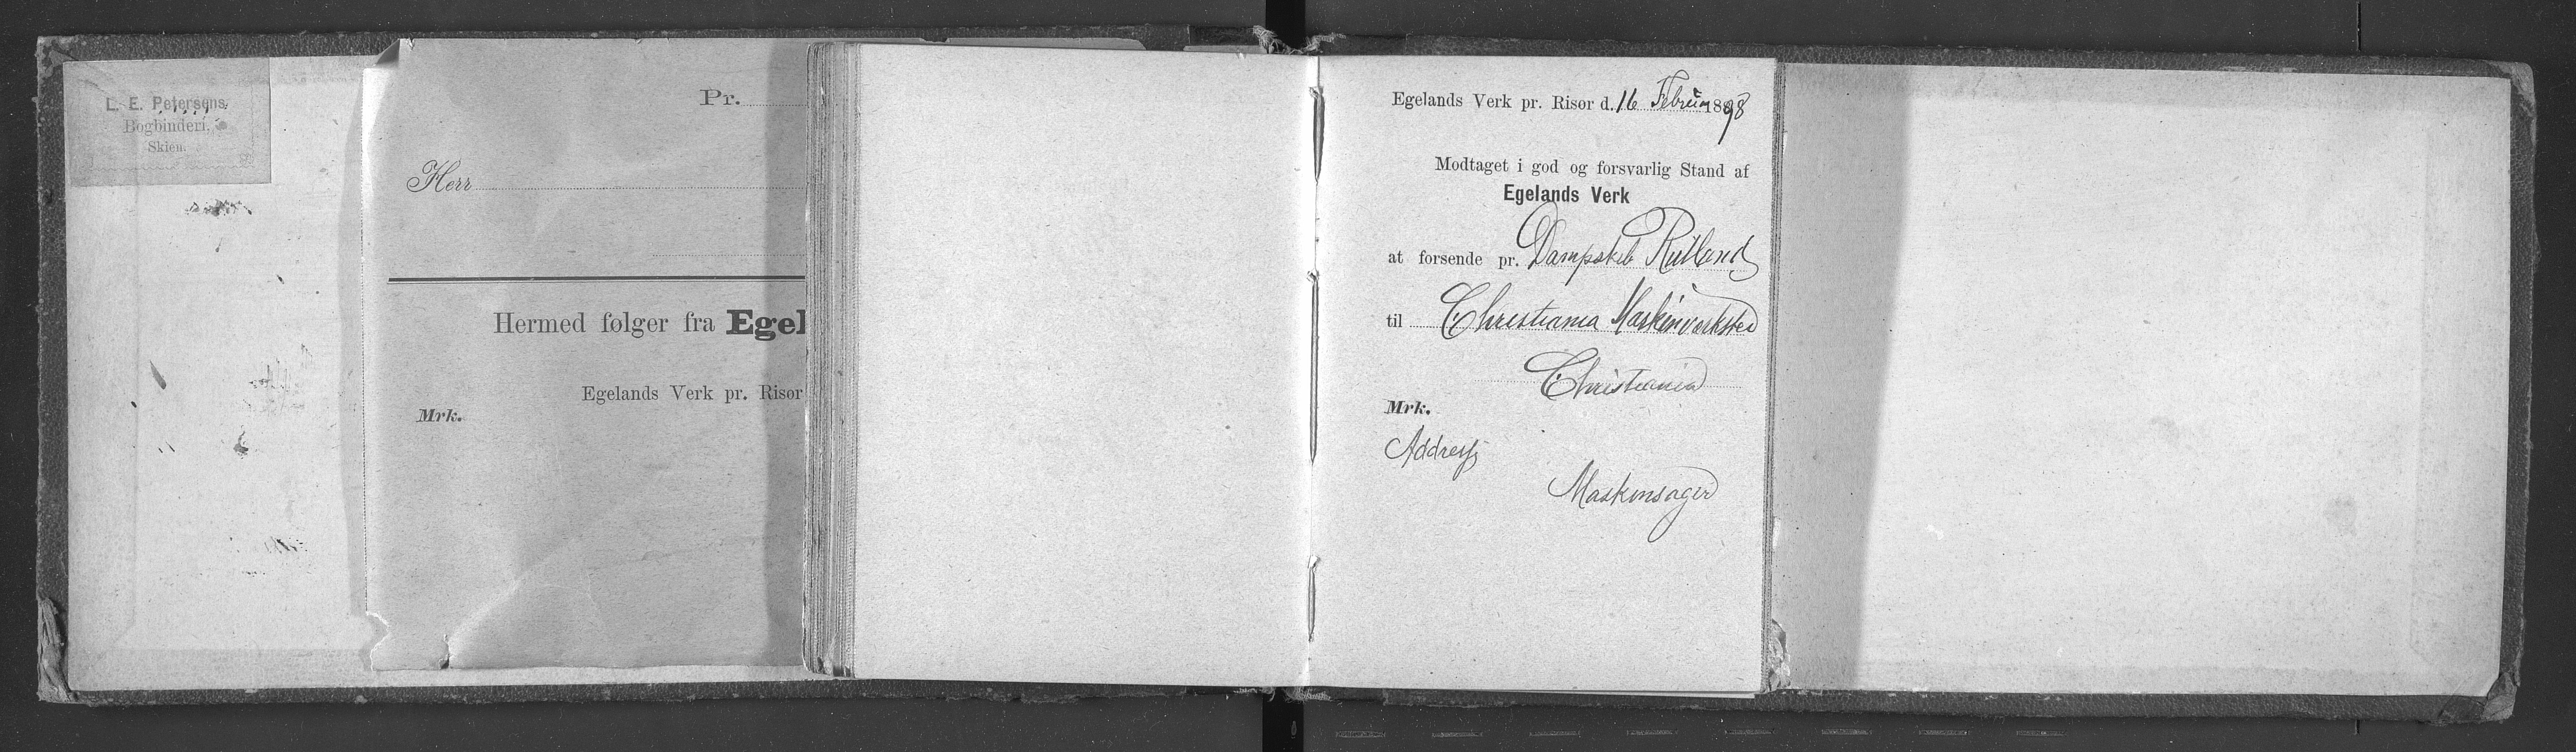 L. E. Petersens
Bogbinderi,
Skien.
Pr.
Herr
Hermed følger fra Egel
Egelands Verk pr. Risør
Mrk.
Egelands Verk pr. Risør d. 16 Februar 1898
Modtaget i god og forsvarlig Stand af
Egelands Verk
at forsende pr. Dampskib Rutland
til Christiania Maskinverksted
Christiania
Mrk.
Address
Maskinsager